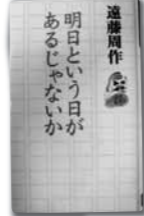 遠藤周作
明日という日が
あるじゃないか